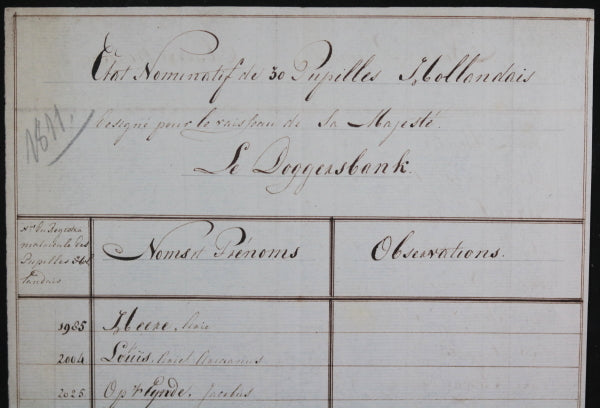 Etat Nominatif de 30 Pupilles Hollandais
besigné pour le vaisseau de Sa Majesté.
Le Doggersbank.
1811.
Nos du Registre
matricule des
Pupilles Hol
landais
Noms et Prénoms
Observations.
1985 Heere,
2004 Louïs, Carel
2025 Op 't Eynde, Jacobus